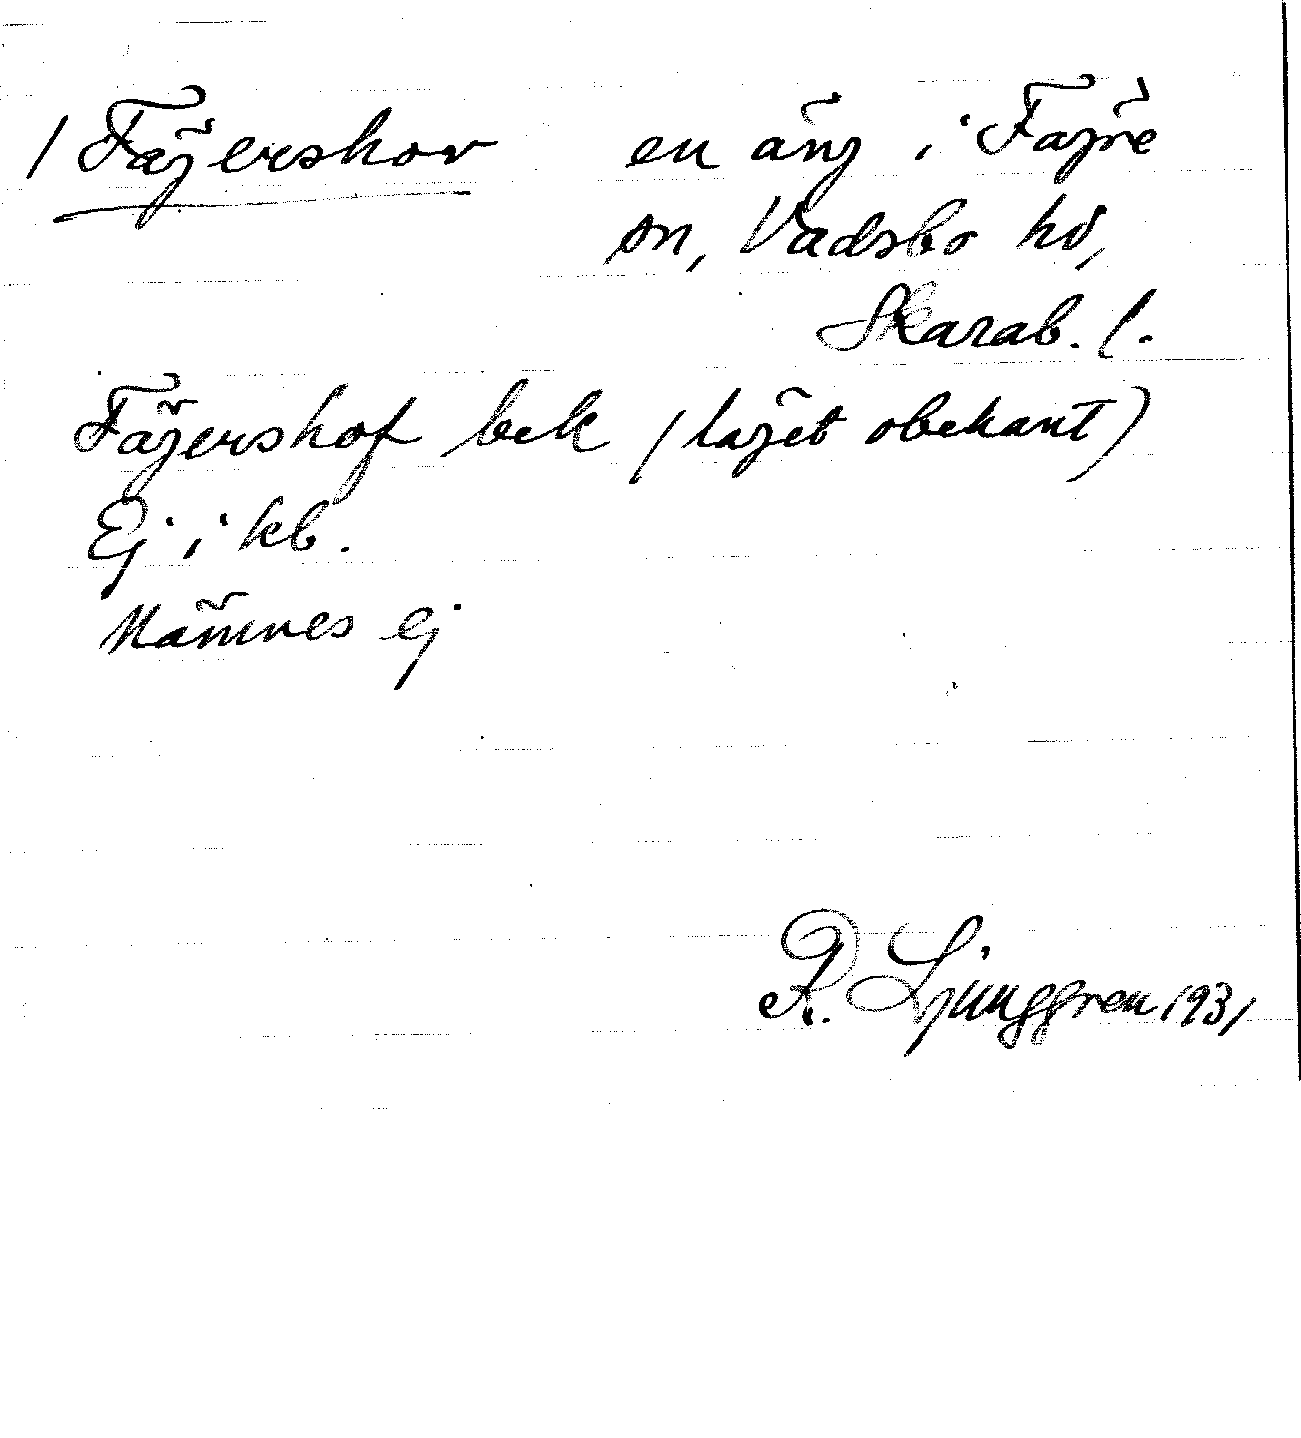 / Fägerskov en äng i Fägre
sn, Vadsbo hd,
Skarab. l.
Fägershof bek (läget obekant)
Ej i kb.
Nämnes ej
R. Ljunggren 1931